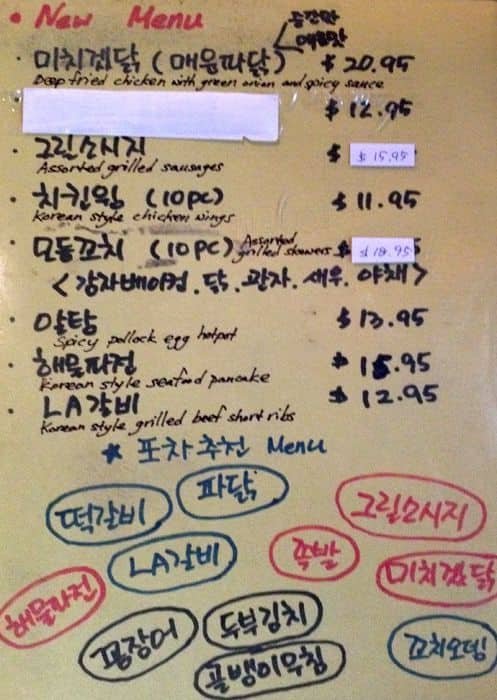 • New Menu
중간맛
매운맛
· 미치겠닭 (매운파닭) $ 20.95
Deep fried chicken with green onion and spicy sauce
$ 12.95
· 그릴소시지 $ $ 15.95
Assorted grilled sausages
· 치킨윙 (10PC) $ 11.95
Korean style chicken wings
· 모둠꼬치 (10PC) Assorted grilled skewers $ $ 18.95
< 감자베이컨 . 닭 . 관자 . 새우 . 야채 >
· 알탕 $ 13.95
Spicy pollock egg hotpot
· 해물파전 $ 15.95
Korean style seafood pancake
· LA갈비 $ 12.95
Korean style grilled beef short ribs
* 포차 추천 Menu
떡갈비
파닭
그릴소시지
LA갈비
족발
미치겠닭
해물파전
꼼장어
두부김치
골뱅이무침
꼬치오뎅